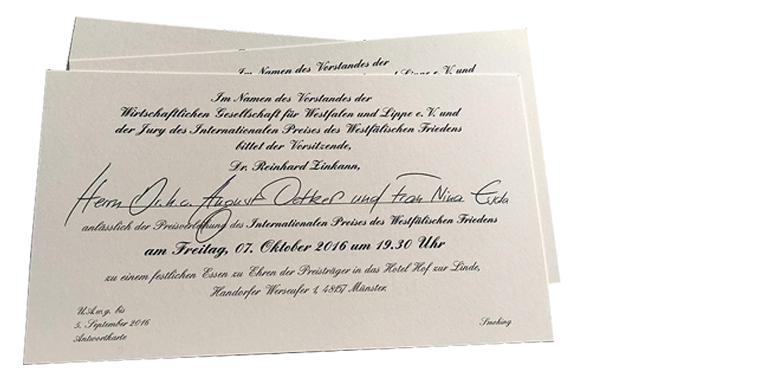 Im Namen des Vorstandes der
Lippe e. V. und
Im Namen des Vorstandes der
Wirtschaftlichen Gesellschaft für Westfalen und Lippe e. V. und
der Jury des Internationalen Preises des Westfälischen Friedens
bittet der Vorsitzende,
Dr. Reinhard Zinkann,
Herrn Dr. h.c. August Oetker und Frau Nina
anlässlich der Preisverleihung des Internationalen Preises des Westfälischen Friedens
am Freitag, 07. Oktober 2016 um 19.30 Uhr
zu einem festlichen Essen zu Ehren der Preisträger in das Hotel Hof zur Linde,
Handorfer Werseufer 1, 48157 Münster.
U.A.w.g. bis
5. September 2016
Antwortkarte
Smoking